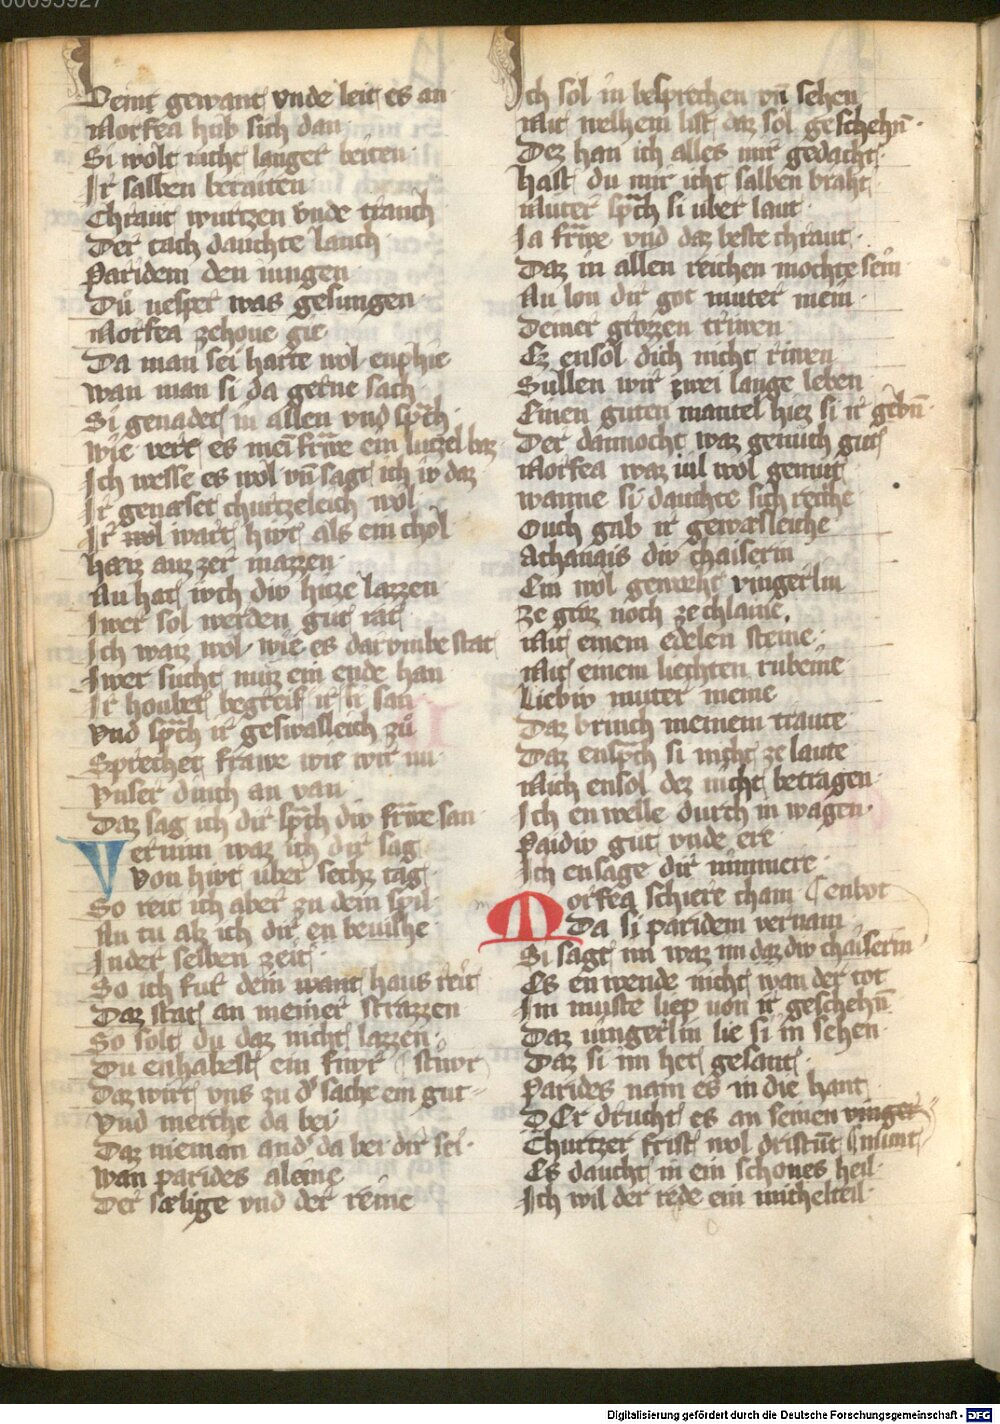 00095927
Deint gewant vnde leit es an
Morfea hub sich dan
Si wolt nicht langer beiten
Ir salben beraiten
Chraut wurtzen vnde tranch
Der tach dauchte lanch
Paridem den iungen
Dů uesper was gesungen
Morfea zehoue gie
Da man sei harte wol enphie
wan man si da gerne sach
Si genadet in allen vnd sp̄ch
wie vert es mei frawe ein lutzel baz
Ich wesse es wol vn̄ sagt ich iv daz
Ir geneset churtzeleich wol
Ir wol wart hivt als ein chol
Haiz auzzer mazzen
Nu hat ivch div hitze lazzen
Iwer sol werden gut rat
Ich waiz wol wie es dar vmbe stat
Iwer sucht muz ein ende han
Ir houbet begreif ir si san
Vnd sp̄ch ir geswasleich zů
Sprechet frawe wie wir nu
Vnser dinch an van
Daz sag ich dir sp̄ch div frawe san
Vernim waz ich dir sag
Von hivt uber sechz tag
So reit ich aber zu dem spil
Nu tu alz ich dir en beuilhe
In der selben zeit
So ich fur dein want haus reit
Daz stat an meiner strazzen
So solt du daz nicht lazzen
Du enhabest ein fiwr stiwr
Daz wirt vns zu d' sache ein gut
Vnd merche da bei
Daz nieman and' da bei dir sei
wan parides aleine
Der sælige vnd der reine
Ich sol in besprechen vn̄ sehen
Mit welhem list daz sol geschehn̄
Dez han ich alles mir gedacht
hast du mir icht salben braht
Muter sp̄ch si uber laut
Ia frawe vnd daz beste chraut
Daz in allen reichen mochte sein
Nu lon dir got muter mein
Deiner grozzen triwen
Ez ensol dich nicht riwen
Sullen wir zwei lange leben
Einen guten mantel hiez si ir gebn̄
Der dannocht waz genuch gut
Morfea waz iul wol gemut
wanne si dauchte sich reiche
Ouch gab ir geswæsleiche
Athanais div chaiserin
Ein wol geworht vingerlin
Ze groz noch ze chlaine
Mit einem edelen steine
Mit einem liechten rubeine
Liebiv muter meine
Daz brinch meinem traute
Daz ensp̄ch si nicht ze laute
Mich ensol dez nicht betragen
Ich en welle durch in wagen
Paidiv gut vnde ere
Ich ensage dir nimmere
Morfea schiere cham enbot
Da si paridem vernam
Si sagt im waz im daz div chaiserin
Es en wende nicht wan der tot
Im muste liep von ir geschehn̄
Daz uingerlin lie si in sehen
Daz si im het gesant
Parides nam es in die hant
DEr drucht es an seinen vinger
Churtzer frist wol dristūt an sinnt
Es daucht in ein schones heil
Ich wil der rede ein michelteil
Digitalisierung gefördert durch die Deutsche Forschungsgemeinschaft - DFG